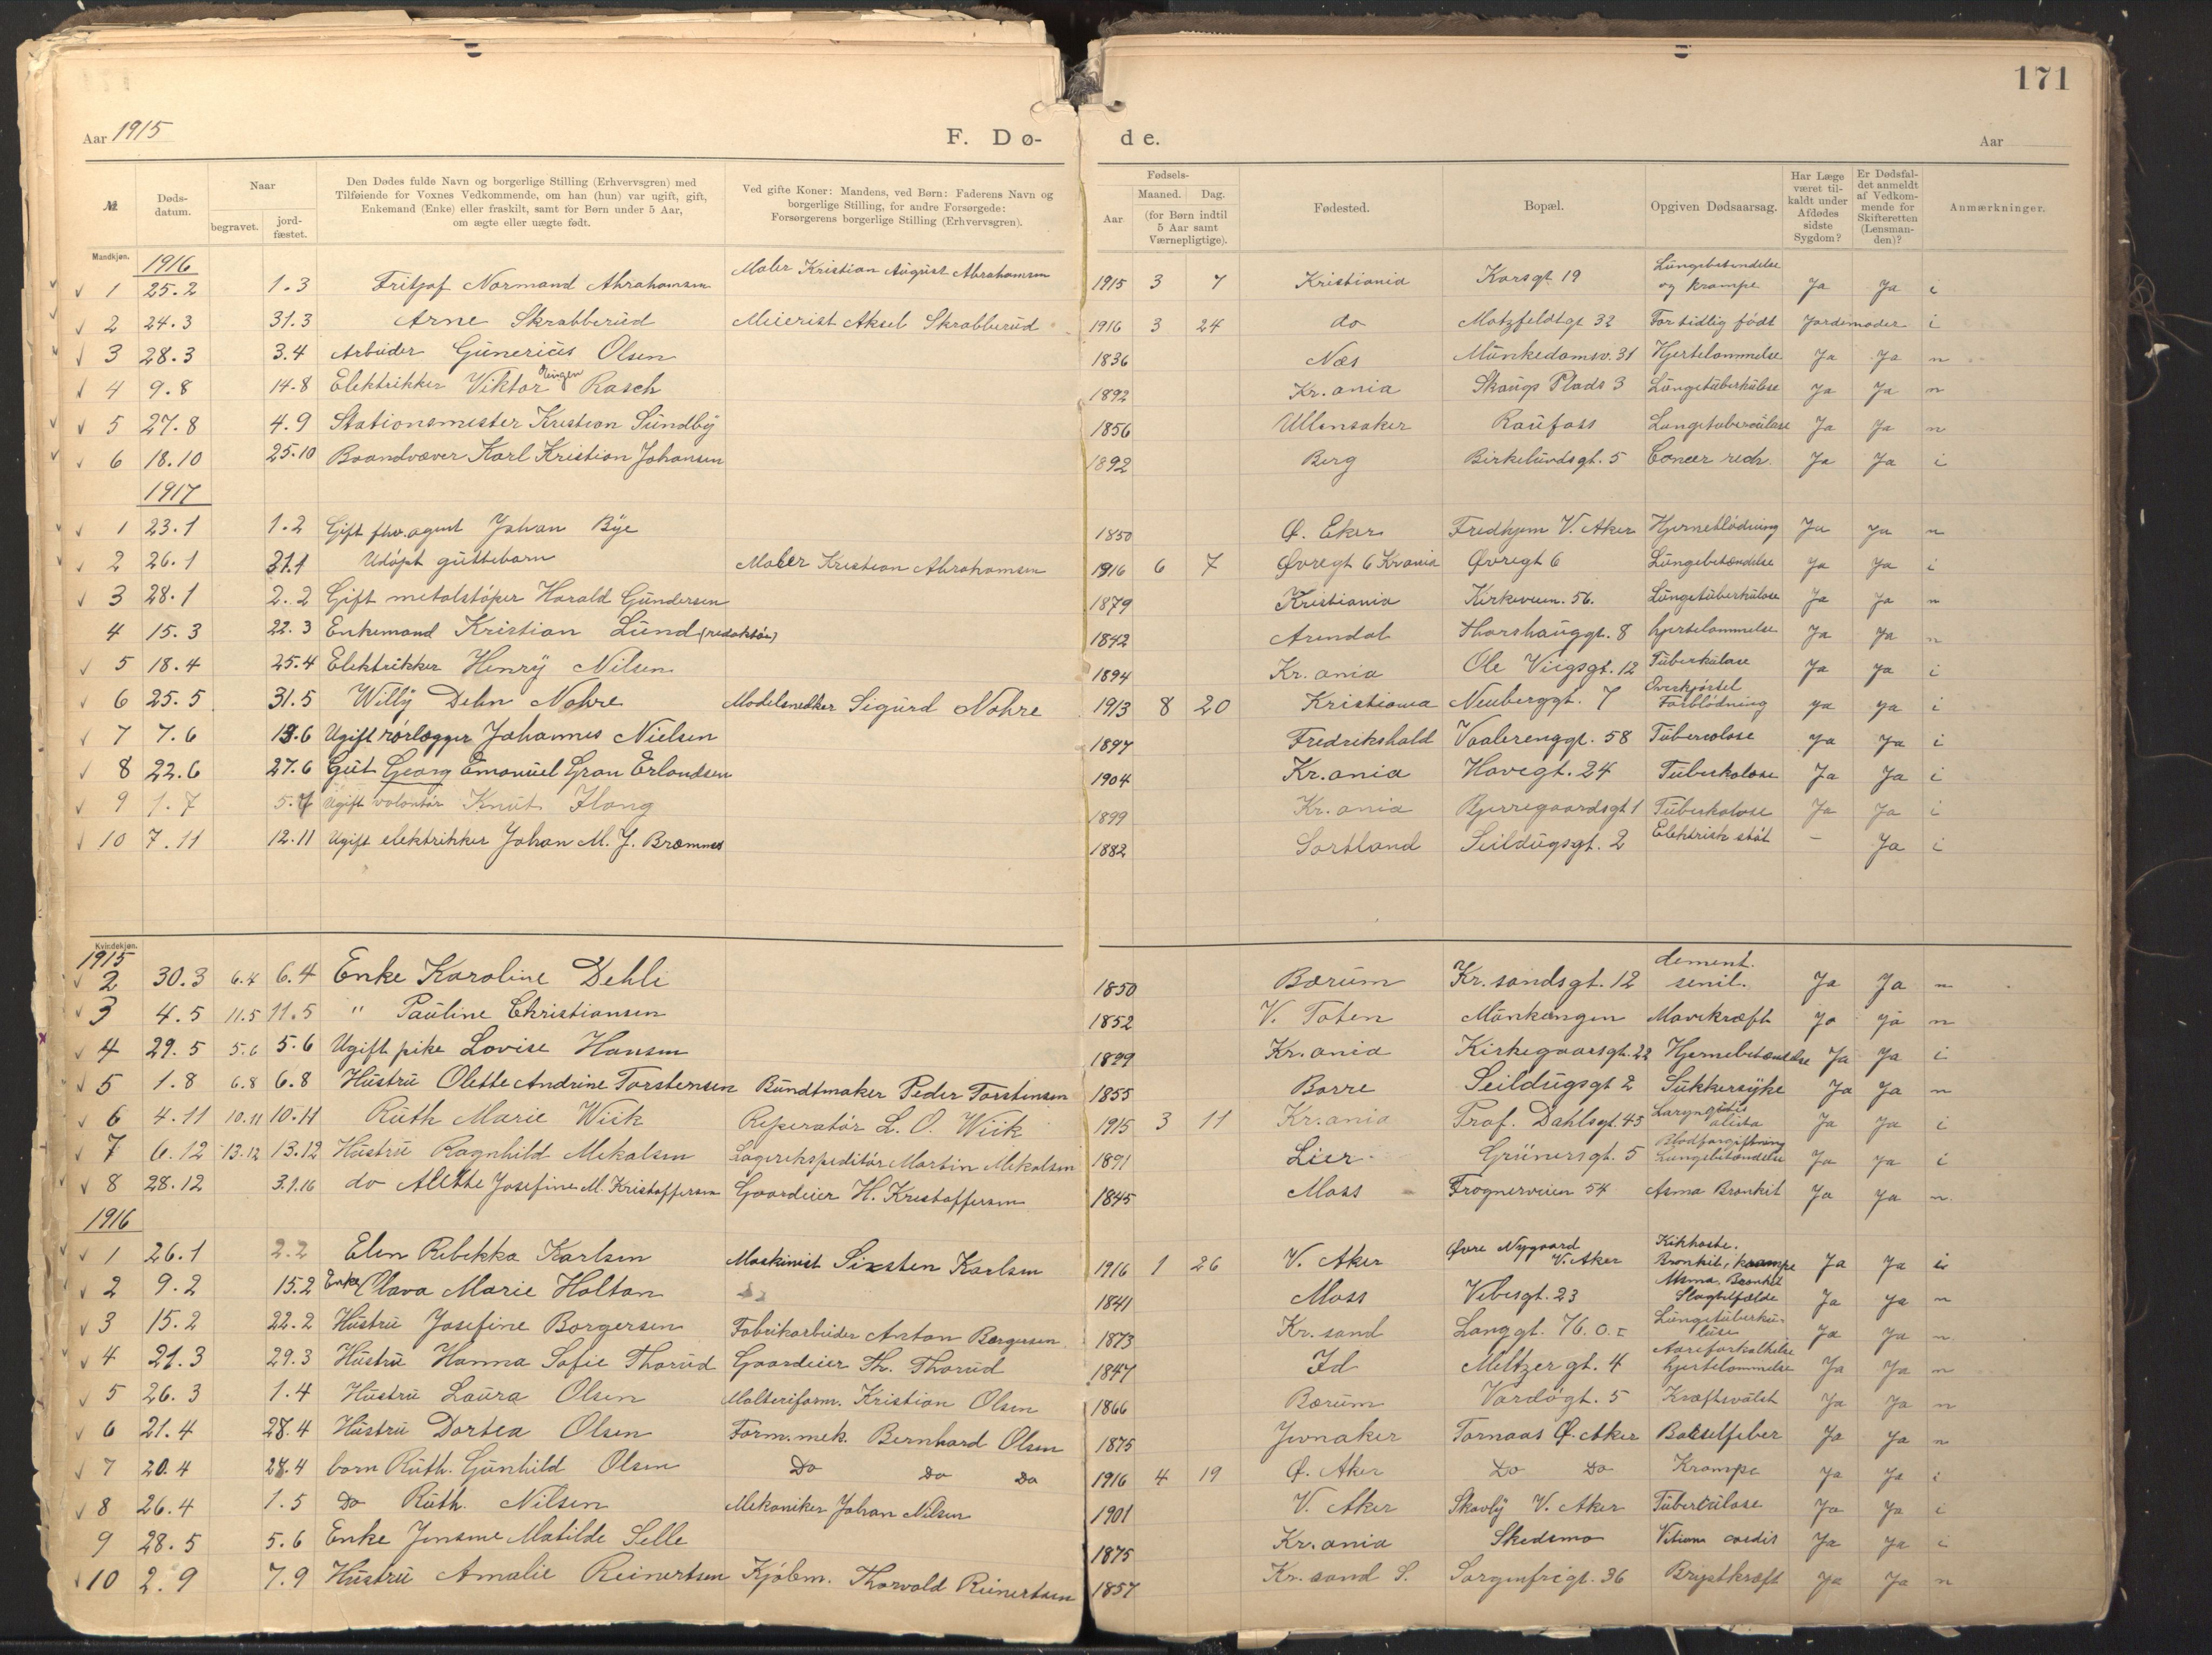 171
Aar 1915
F. Dø-
de.
Aar
№
Døds-
datum.
Naar
begravet.
jord-
fæstet.
Den Dødes fulde Navn og borgerlige Stilling (Erhvervsgren) med
Tilføiende for Voxnes Vedkommende, om han (hun) var ugift, gift,
Enkemand (Enke) eller fraskilt, samt for Børn under 5 Aar,
om ægte eller uægte født.
Ved gifte Koner: Mandens, ved Børn: Faderens Navn og
borgerlige Stilling, for andre Forsørgede:
Forsørgerens borgerlige Stilling (Erhvervsgren).
Fødsels-
Aar
Maaned. Dag.
(for Børn indtil
5 Aar samt
Værnepligtige).
Fødested.
Bopæl.
Opgiven Dødsaarsag.
Har Læge
været til-
kaldt under
Afdødes
sidste
Sygdom?
Er Dødsfal-
det anmeldt
af Vedkom-
mende for
Skifteretten
(Lensman-
den)?
Anmærkninger.
Mandkjøn.
1916
1 25.2 1.3 Fritjof Normand Abrahamsen Maler Kristian August Abrahamsen 1915 3 7 Kristiania Korsgt. 19 Lungebetendelse og krampe Ja Ja i
2 24.3 31.3 Arne Skrabberud Meierist Aksel Skrabberud 1916 3 24 do Motzfeldtgt 32 For tidlig født Jordemoder i
3 28.3 3.4 Arbeider Gunerius Olsen 1836 Næs Munkedamsv. 31 Hjertelammelse Ja Ja n
4 9.8 14.8 Elektrikker Viktor Ringen Rasch 1892 Kr.ania Skaugs Plads 3 Lungetuberkulose Ja Ja n
5 27.8 4.9 Stationsmester Kristian Sundby 1856 Ullensaker Raufoss Lungetuberculose Ja Ja n
6 18.10 25.10 Baandvæver Karl Kristian Johansen 1892 Berg Birkelundsgt. 5 Cancer rech. Ja Ja i
1917
1 23.1 1.2 Gift fhv. agent Johan Bye 1850 Ø. Eker Fredhjem V. Aker Hjerneblödning Ja Ja n
2 26.1 31.1 Udöpt guttebarn Maler Kristian Abrahamsen 1916 6 7 Øvregt 6 Krania Øvregt 6 Lungebetændelse Ja Ja i
3 28.1 2.2 Gift metalstöper Harald Gundersen 1879 Kristiania Kirkeveien. 56. Lungetuberkulose Ja Ja n
4 15.3 22.3 Enkemand Kristian Lund (redaktör) 1842 Arendal Thorshauggt. 8 hjertelammelse Ja Ja n
5 18.4 25.4 Elektrikker Henry Nilsen 1894 Kr.ania Ole Viigsgt. 12 Tuberkulose Ja Ja i
6 25.5 31.5 Willy Dehn Nohre Modelsnedker Sigurd Nohre 1913 8 20 Kristiania Neuberggt. 7 Overkjörsel Forblödning ya ya i
7 7.6 13.6 Ugift rörlægger Johannes Nielsen 1897 Fredrikshald Vaalerenggt. 58 Tuberculose ya Ja i
8 22.6 27.6 Gut Georg Emanuel Gran Erlandsen 1904 Kr.ania Havegt. 24 Tuberkolose Ja Ja i
9 1.7 5.7 Ugift volontör Knut Haug 1899 Kr.ania Bjerregaardsgt 1 Tuberkolose Ja Ja i
10 7.11 12.11 Ugift elektrikker Johan M. J. Bromnes 1882 Sortland Seildugsgt. 2 Elektrisk stöt – Ja i
Kvindekjøn.
1915
2 30.3 6.4 6.4 Enke Karoline Dehli 1850 Bærum Kr.sandsgt. 12 dement. senil. Ja Ja n
3 4.5 11.5 11.5 " Pauline Christiansen 1852 V. Toten Munkengen Mavekræft Ja ja n
4 29.5 5.6 5.6 Ugift pike Lovise Hansen 1899 Kr.ania Kirkegaarsgt. 22 Hjernebetændelse Ja Ja i
5 1.8 6.8 6.8 Hustru Olette Andrine Torstensen Bundtmaker Peder Torstensen 1855 Borre Seildugsgt 2 Sukkersyke Ja Ja n
6 4.11 10.11 10.11 Ruth Marie Wiik Reperatör L. O. Wiik 1915 3 11 Kr.ania Prof. Dahlsgt. 45 Laryngitis Ja Ja i
7 6.12 13.12 13.12 Hustru Ragnhild Mekalsen Lagerekspeditör Martin Mekalsen 1891 Lier Grünersgt. 5 Blodforgiftning Lungebetændelse Ja Ja i
8 28.12 3.1.16 do Alette Josefine M. Kristoffersen Gaardeier H. Kristoffersen 1845 Moss Frognerveien 54 Asma Bronkit Ja Ja n
1916
1 26.1 2.2 Elen Rebekka Karlsen Maskinist Sixsten Karlsen 1916 1 26 V. Aker Øvre Nygaard V. Aker Kikhoste. Bronkit, krampe Ja Ja i
2 9.2 15.2 Enke Olava Marie Holtan 1841 Moss Vibesgt. 23 Asma, Bronkit Slagtilfælde Ja ya n
3 15.2 22.2 Hustru Josefine Borgersen Fabrikarbeider Anton Borgersen 1873 Kr.sand Langgt. 76. Lungetuberkulose Ja Ja n
4 21.3 29.3 Hustru Hanna Sofie Thorud Gaardeier Th. Thorud 1847 Id Meltzergt. 4 Aareforkalkelse hjertelammelse Ja Ja n
5 26.3 1.4 Hustru Laura Olsen Malteriform. Kristian Olsen 1866 Bærum Vardögt. 5 Kræftsvulst Ja Ja n
6 21.4 28.4 Hustru Dortea Olsen Form. mek. Bernhard Olsen 1875 Jevnaker Tornaas Ø. Aker Barselfeber Ja Ja n
7 20.4 28.4 barn Ruth. Gunhild Olsen Do Do Do 1916 4 19 Ø. Aker Do Do Krampe Ja Ja i
8 26.4 1.5 Do Ruth. Nilsen Mekaniker Johan Nilsen 1901 V. Aker Skovly V. Aker Tuberkulose Ja Ja i
9 28.5 5.6 Enke Jensine Matilde Selle 1875 Kr.ania Skedsmo Vitium cordis Ja Ja i
10 2.9 7.9 Hustru Amalie Reinertsen Kjöbm. Thorvald Reinertsen 1857 Kr.sand S. Sorgenfrigt. 36 Brystkræft Ja Ja n